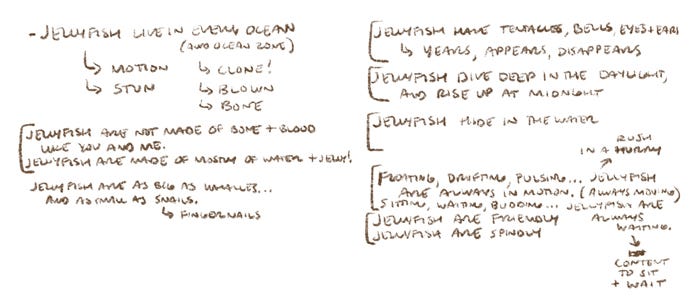 - JELLYFISH LIVE IN EVERY OCEAN
(AND OCEAN ZONE)
↳ MOTION ↳ CLONE!
↳ STUN ↳ BLOWN
↳ BONE
JELLYFISH ARE NOT MADE OF BONE + BLOOD
LIKE YOU AND ME.
JELLYFISH ARE MADE OF MOSTLY OF WATER + JELLY!
JELLYFISH ARE AS BIG AS WHALES...
AND AS SMALL AS SNAILS.
↳ FINGERNAILS
JELLYFISH HAVE TENTACLES, BELLS, EYES + EARS
↳ YEARS, APPEARS, DISAPPEARS
JELLYFISH DIVE DEEP IN THE DAYLIGHT,
AND RISE UP AT MIDNIGHT
JELLYFISH HIDE IN THE WATER
RUSH
IN A HURRY
FLOATING, DRIFTING, PULSING... JELLYFISH
ARE ALWAYS IN MOTION. (ALWAYS MOVING)
SITTING, WAITING, BUDDING... JELLYFISH ARE
ALWAYS
WAITING.
JELLYFISH ARE FRIENDLY
JELLYFISH ARE SPINDLY
CONTENT
TO SIT
+ WAIT